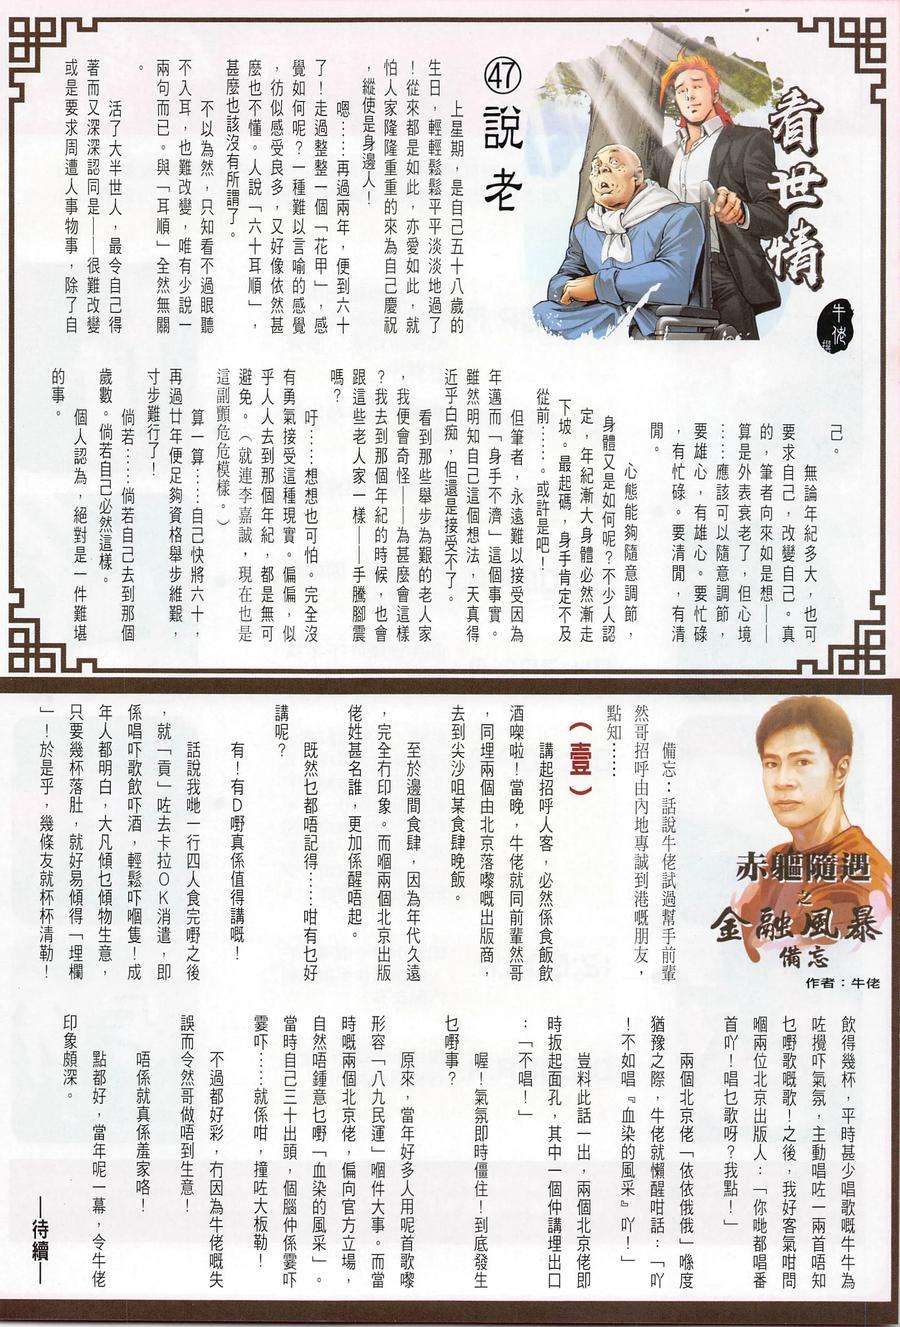 看世情
牛佬
㊼說老
上星期，是自己五十八歲的
生日，輕輕鬆鬆平平淡淡地過了
！從來都是如此，亦愛如此，就
怕人家隆隆重重的來為自己慶祝
，縱使是身邊人！
嗯……再過兩年，便到六十
了！走過整整一個「花甲」，感
覺如何呢？一種難以言喻的感覺
，彷似感受良多，又好像依然甚
麼也不懂。人說「六十耳順」，
甚麼也該沒有所謂了。
不以為然，只知看不過眼聽
不入耳，也難改變，唯有少說一
兩句而已。與「耳順」全然無關
。
活了大半世人，最令自己得
著而又深深認同是——很難改變
或是要求周遭人事物事，除了自
己。
無論年紀多大，也可
要求自己，改變自己。真
的，筆者向來如是想——
算是外表衰老了，但心境
……應該可以隨意調節，
要雄心，有雄心。要忙碌
，有忙碌。要清閒，有清
閒。
心態能夠隨意調節，
身體又是如何呢？不少人認
定，年紀漸大身體必然漸走
下坡。最起碼，身手肯定不及
從前……。或許是吧！
但筆者，永遠難以接受因為
年邁而「身手不濟」這個事實。
雖然明知自己這個想法，天真得
近乎白痴，但還是接受不了。
看到那些舉步為艱的老人家
，我便會奇怪——為甚麼會這樣
？我去到那個年紀的時候，也會
跟這些老人家一樣——手騰腳震
嗎？
吁……想想也可怕。完全沒
有勇氣接受這種現實。偏偏，似
乎人人去到那個年紀，都是無可
避免。（就連李嘉誠，現在也是
這副顫危危模樣。）
算一算……自己快將六十，
再過廿年便足夠資格舉步維艱，
寸步難行了！
倘若……倘若自己去到那個
歲數。倘若自己必然這樣。
個人認為，絕對是一件難堪
的事。
赤軀隨遇
之
金融風暴
備忘
作者：牛佬
備忘：話說牛佬試過幫手前輩
然哥招呼由內地專誠到港嘅朋友，
點知……
（壹）
講起招呼人客，必然係食飯飲
酒㗎啦！當晚，牛佬就同前輩然哥
，同埋兩個由北京落嚟嘅出版商，
去到尖沙咀某食肆晚飯。
至於邊間食肆，因為年代久遠
，完全冇印象。而嗰兩個北京出版
佬姓甚名誰，更加係醒唔起。
既然乜都唔記得……咁有乜好
講呢？
有！有D嘢真係值得講嘅！
話說我哋一行四人食完嘢之後
，就「貢」咗去卡拉OK消遣，即
係唱吓歌飲吓酒，輕鬆吓嗰隻！成
年人都明白，大凡傾乜傾物生意，
只要幾杯落肚，就好易傾得「埋欄
」！於是乎，幾條友就杯杯清勒！
飲得幾杯，平時甚少唱歌嘅牛牛為
咗攪吓氣氛，主動唱咗一兩首唔知
乜嘢歌嘅歌！之後，我好客氣咁問
嗰兩位北京出版人：「你哋都唱番
首吖！唱乜歌呀？我點！」
兩個北京佬「依依俄俄」喺度
猶豫之際，牛佬就懶醒咁話：「吖
！不如唱『血染的風采』吖！」
豈料此話一出，兩個北京佬即
時扳起面孔，其中一個仲講埋出口
：「不唱！」
喔！氣氛即時僵住！到底發生
乜嘢事？
原來，當年好多人用呢首歌嚟
形容「八九民運」嗰件大事。而當
時嘅兩個北京佬，偏向官方立場，
自然唔鍾意乜嘢「血染的風采」。
當時自己三十出頭，個腦仲係霎吓
霎吓……就係咁，撞咗大板勒！
不過都好彩，冇因為牛佬嘅失
誤而令然哥做唔到生意！
唔係就真係羞家咯！
點都好，當年呢一幕，令牛佬
印象頗深。
—待續—